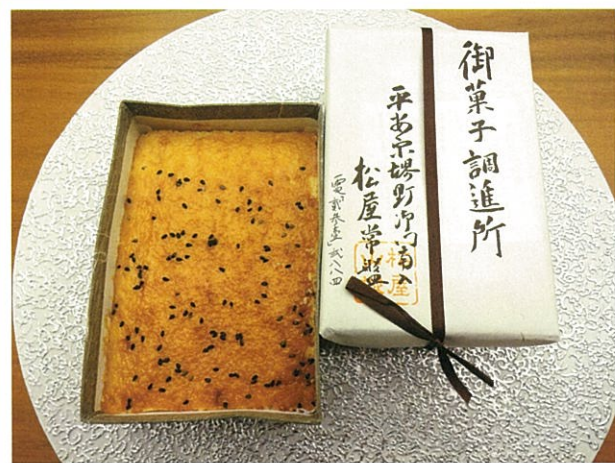 御菓子調進所
平安京堺町御門南入
松屋常盤
電弐参壱弐八八四